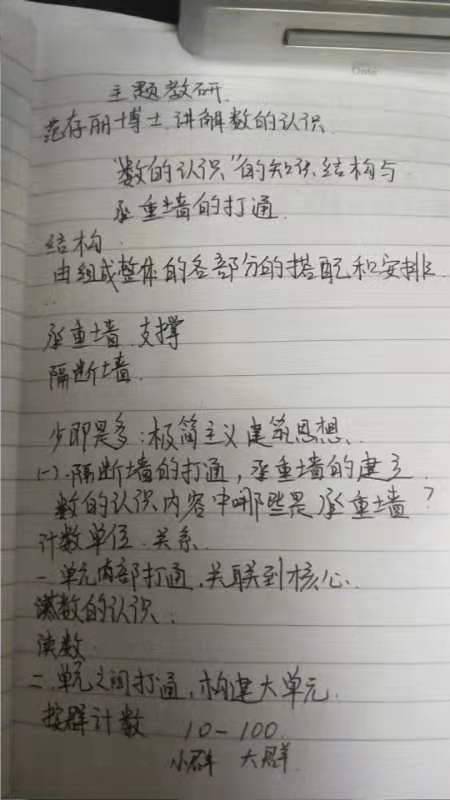 Date
主题教研
范存丽博士 讲解数的认识
“数的认识”的知识结构与
承重墙的打通
结构
由组成整体的各部分的搭配和安排
承重墙 支撑
隔断墙
少即是多：极简主义建筑思想
(一)隔断墙的打通，承重墙的建立
数的认识内容中哪些是承重墙？
计数单位 关系
一 单元内部打通 关联到核心
数的认识：
读数
二 单元之间打通，构建大单元
按群计数 10-100
小群 大群